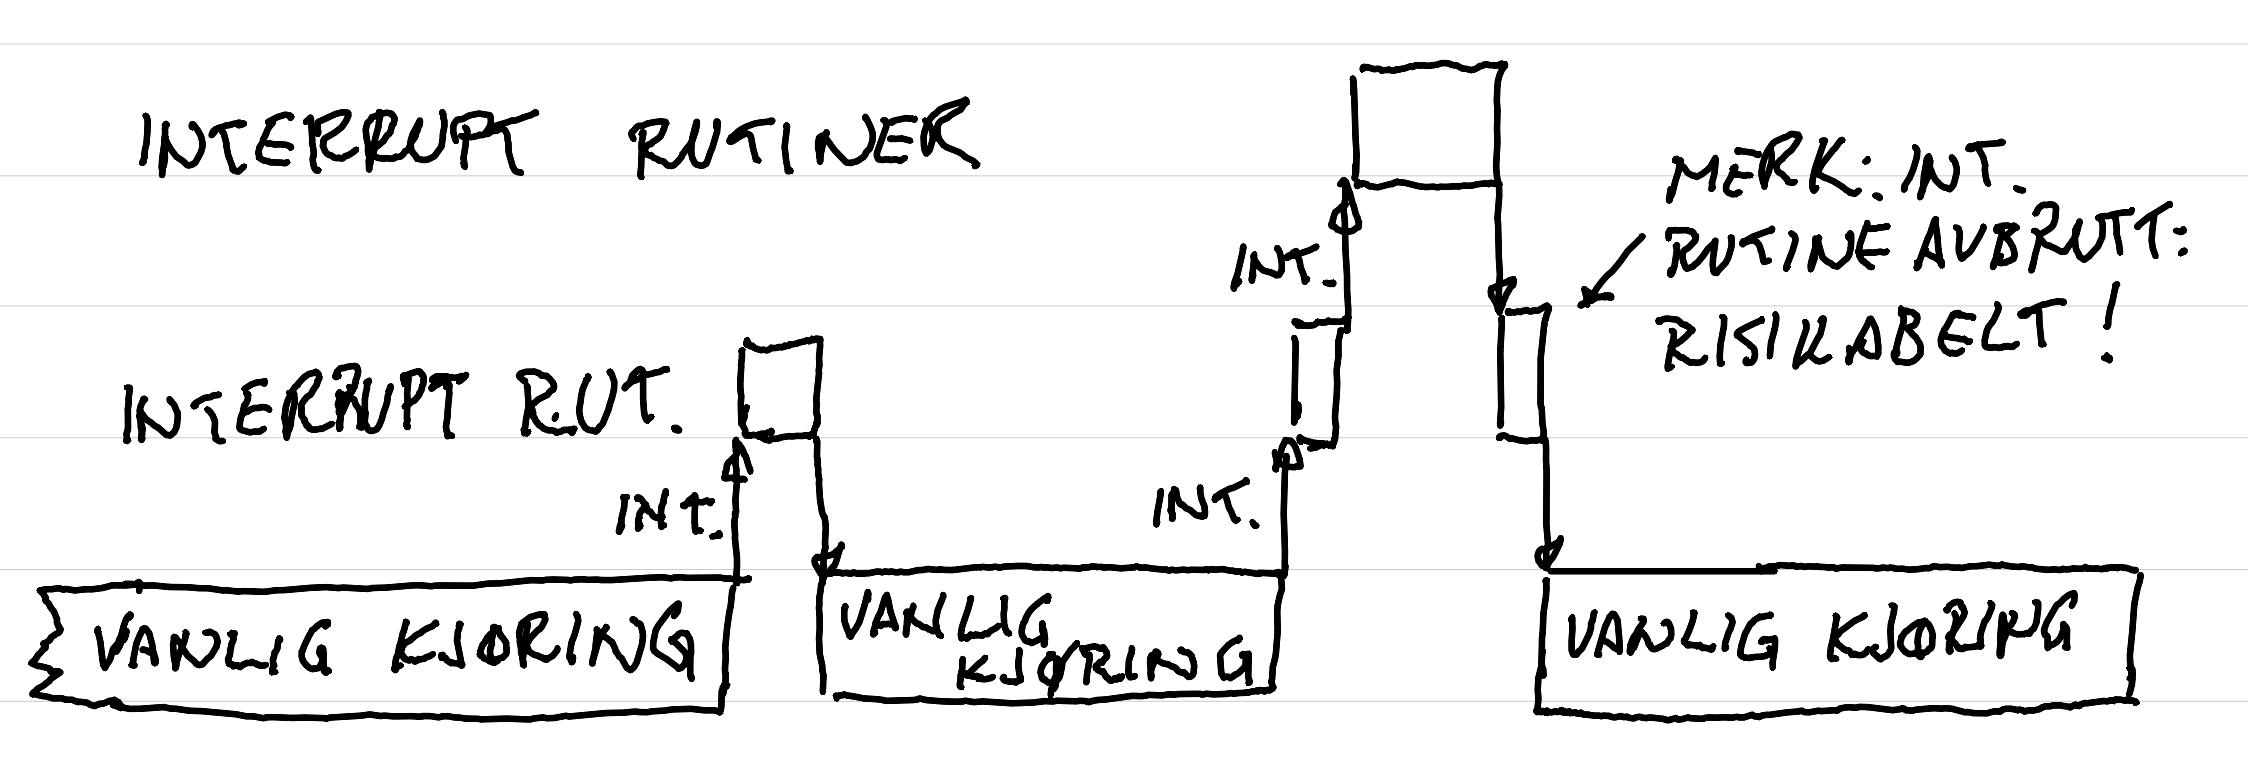 INTERRUPT RUTINER
MERK: INT.
RUTINE AVBRUTT:
RISIKABELT!
INT.
INTERRUPT RUT.
INT.
INT.
VANLIG KJØRING
VANLIG
KJØRING
VANLIG KJØRING